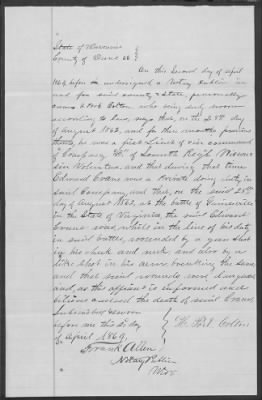 State of Wisconsin
County of Dane SS
On this Second day of April
1869 before undersigned a Notary Public in
and for said county & State, personally
came Colton, who being duly sworn
according to law, says that, on the 28th day
of August 1862, and for three months previous
thereto, he was a first Lieut. in command
of Company of Seventh Regt. Wiscon
sin Volunteers and that during that time
Edward Evans was a Private doing duty in
said Company, and that, on the said 28th
day of August 1862, at the battle of Gainesville
in the State of Virginia, the said Edward
Evans was, whilst in the line of his duty
in said battle, wounded by a gun shot
in his cheek and neck and also by a
like shot in his arm, breaking the same
and that said wounds were dangerous
and, as this affiant is informed and
believes caused the death of said Evans
Subscribed & sworn
before me this 2d day
of April 1869.
Colton
Frank Allen
Notary Public
Wis